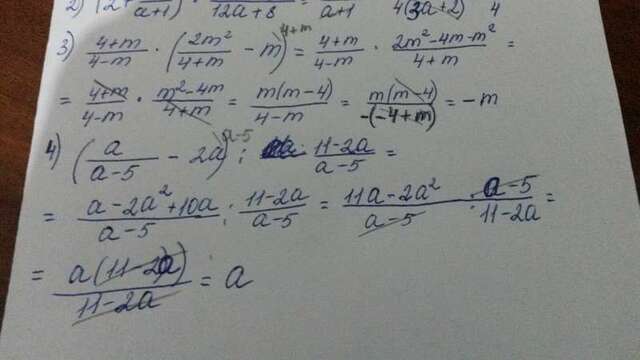 2) (2 + /(a+1) · /(12a+8) = /(a+1) 4(3a+2) 4
3) (4+m)/(4-m) · ((2m²)/(4+m) - m)^(4+m) = (4+m)/(4-m) · (2m²-4m-m²)/(4+m) =
= (4+m)/(4-m) · (m²-4m)/(4+m) = (m(m-4))/(4-m) = (m(m-4))/(-(-4+m)) = -m
4) (a/(a-5) - 2a)^(a-5) : (11-2a)/(a-5) =
= (a-2a²+10a)/(a-5) : (11-2a)/(a-5) = (11a-2a²)/(a-5) · (a-5)/(11-2a) =
= (a(11-2a))/(11-2a) = a